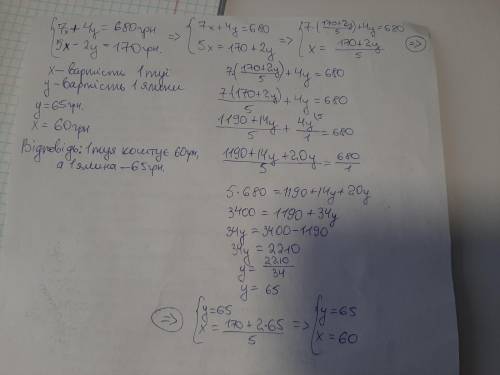 {7x + 4y = 680грн => {7x + 4y = 680 => {7(170+2y/5) + 4y = 680
{5x - 2y = 170грн. {5x = 170 + 2y {x = 170+2y/5 =>
x - вартість 1 туї
y - вартість 1 ялини
y = 65грн.
x = 60грн
Відповідь: 1 туя коштує 60грн,
а 1 ялина - 65грн.
7(170+2y/5) + 4y = 680
7(170+2y)/5 + 4y = 680
1190+14y/5 + 4y/1 ⁽⁵ = 680
1190+14y+20y/5 = 680/1
5·680 = 1190+14y+20y
3400 = 1190+34y
34y = 3400-1190
34y = 2210
y = 2210/34
y = 65
=> {y = 65 => {y = 65
{x = 170+2·65/5 {x = 60